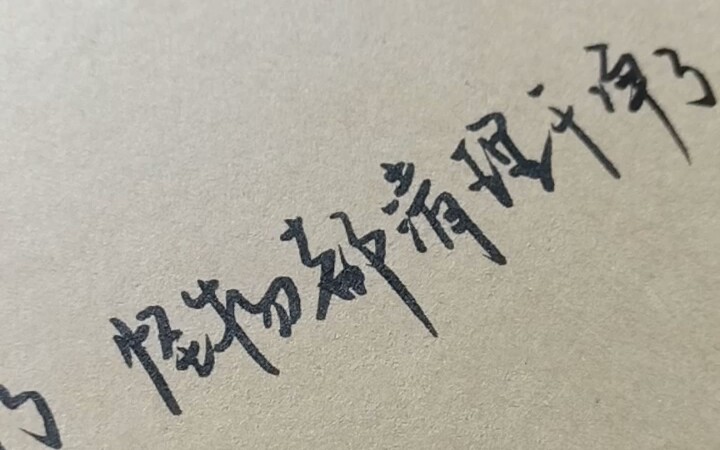 了 怪物都清理干净了